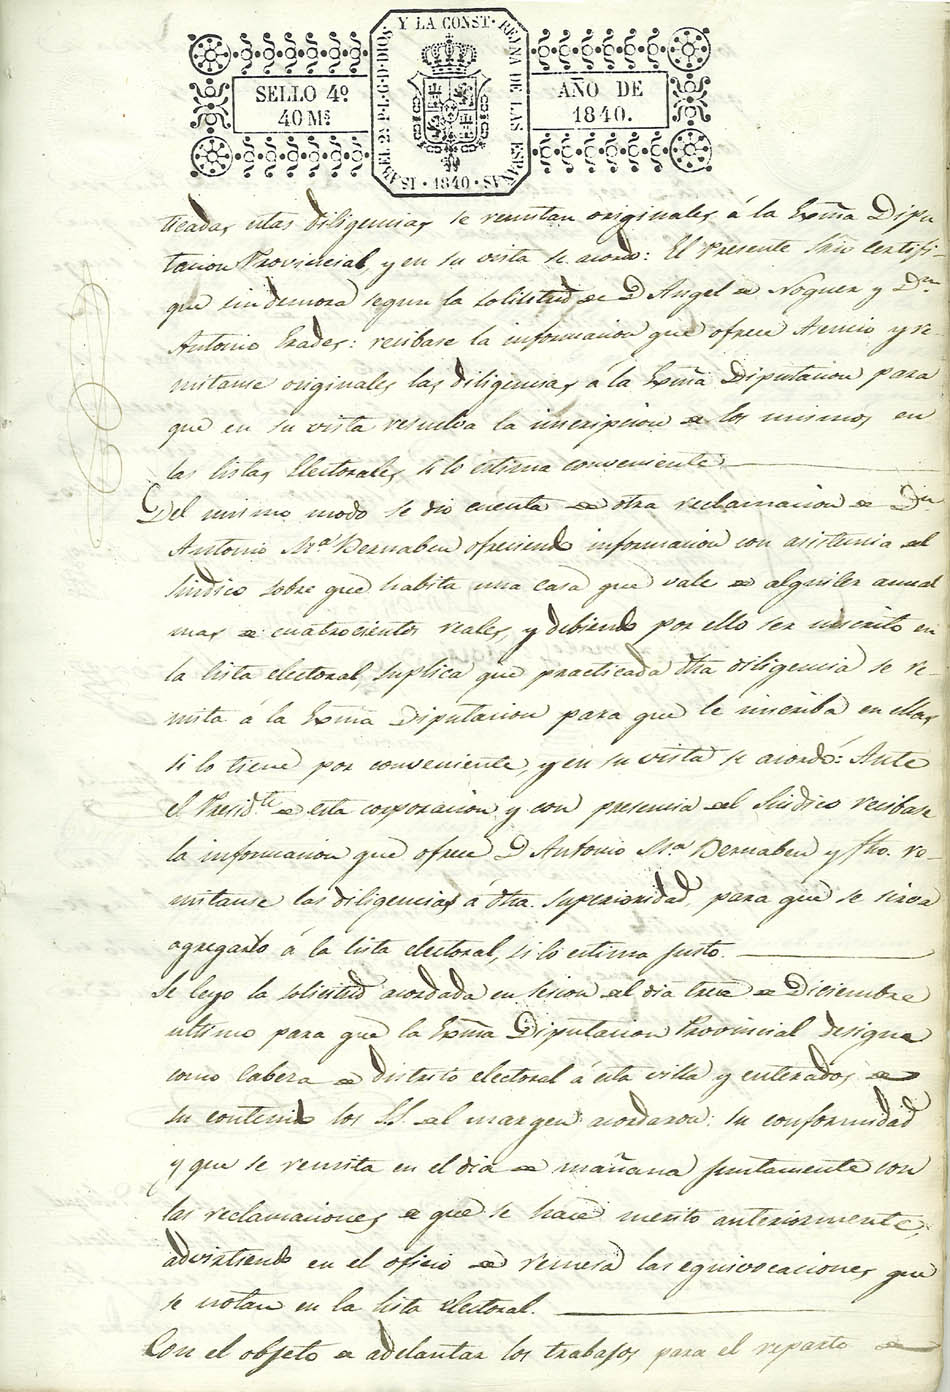 ISABEL 2ª P.L.G.D DIOS Y LA CONST. REINA DE LAS ESPAÑAS
SELLO 4º
40 Mˢ
AÑO DE
1840.
· 1840 ·
ticadas estas diligencias se remitan originales á la Exmã Dipu
tacion Provincial, y en su vista se acordo: El Presente Srio certifi-
que sin demora segun la solicitud de D. Angel de Noguer y Dⁿ
Antonio Prades: recibase la informacion que ofrece Asencio y re
mitanse originales las diligencias á la Exmã Diputacion para
que en su vista resuelva la inscripcion de los mismos en
las listas Electorales si lo estima conveniente
Del mismo modo se dio cuenta de otra reclamacion de Dⁿ
Antonio Mª Bernabeu ofreciendo informacion con asistencia del
Sindico sobre que habita una casa que vale de alquiler anual
mas de cuatrocientos reales, y debiendo por ello ser inscrito en
la lista electoral, suplica que practicada dha diligencia se re-
mita á la Exmã Diputacion para que le inscriba en ellas,
si lo tiene por conveniente, y en su vista se acordó: Ante
el Presidᵗᵉ de esta corporacion y con presencia del Sindico recibase
la informacion que ofrece D. Antonio Mª Bernabeu y fho. re-
mitanse las diligencias á dha superioridad, para que se sirva
agregarlo á la lista electoral, si lo estima justo.
Se leyo la solicitud acordada en sesion del dia trece de Diciembre
ultimo para que la Exmã Diputacion Provincial designe
como Cabeza de distrito electoral á esta villa y enterados de
su contenido los S.S. del margen acordaron: su conformidad
y que se remita en el dia de mañana juntamente con
las reclamaciones de que se hace merito anteriormente,
advirtiendo en el oficio de remesa las equivocaciones que
se notan en la lista electoral.
Con el objeto de adelantar los trabajos para el reparto de